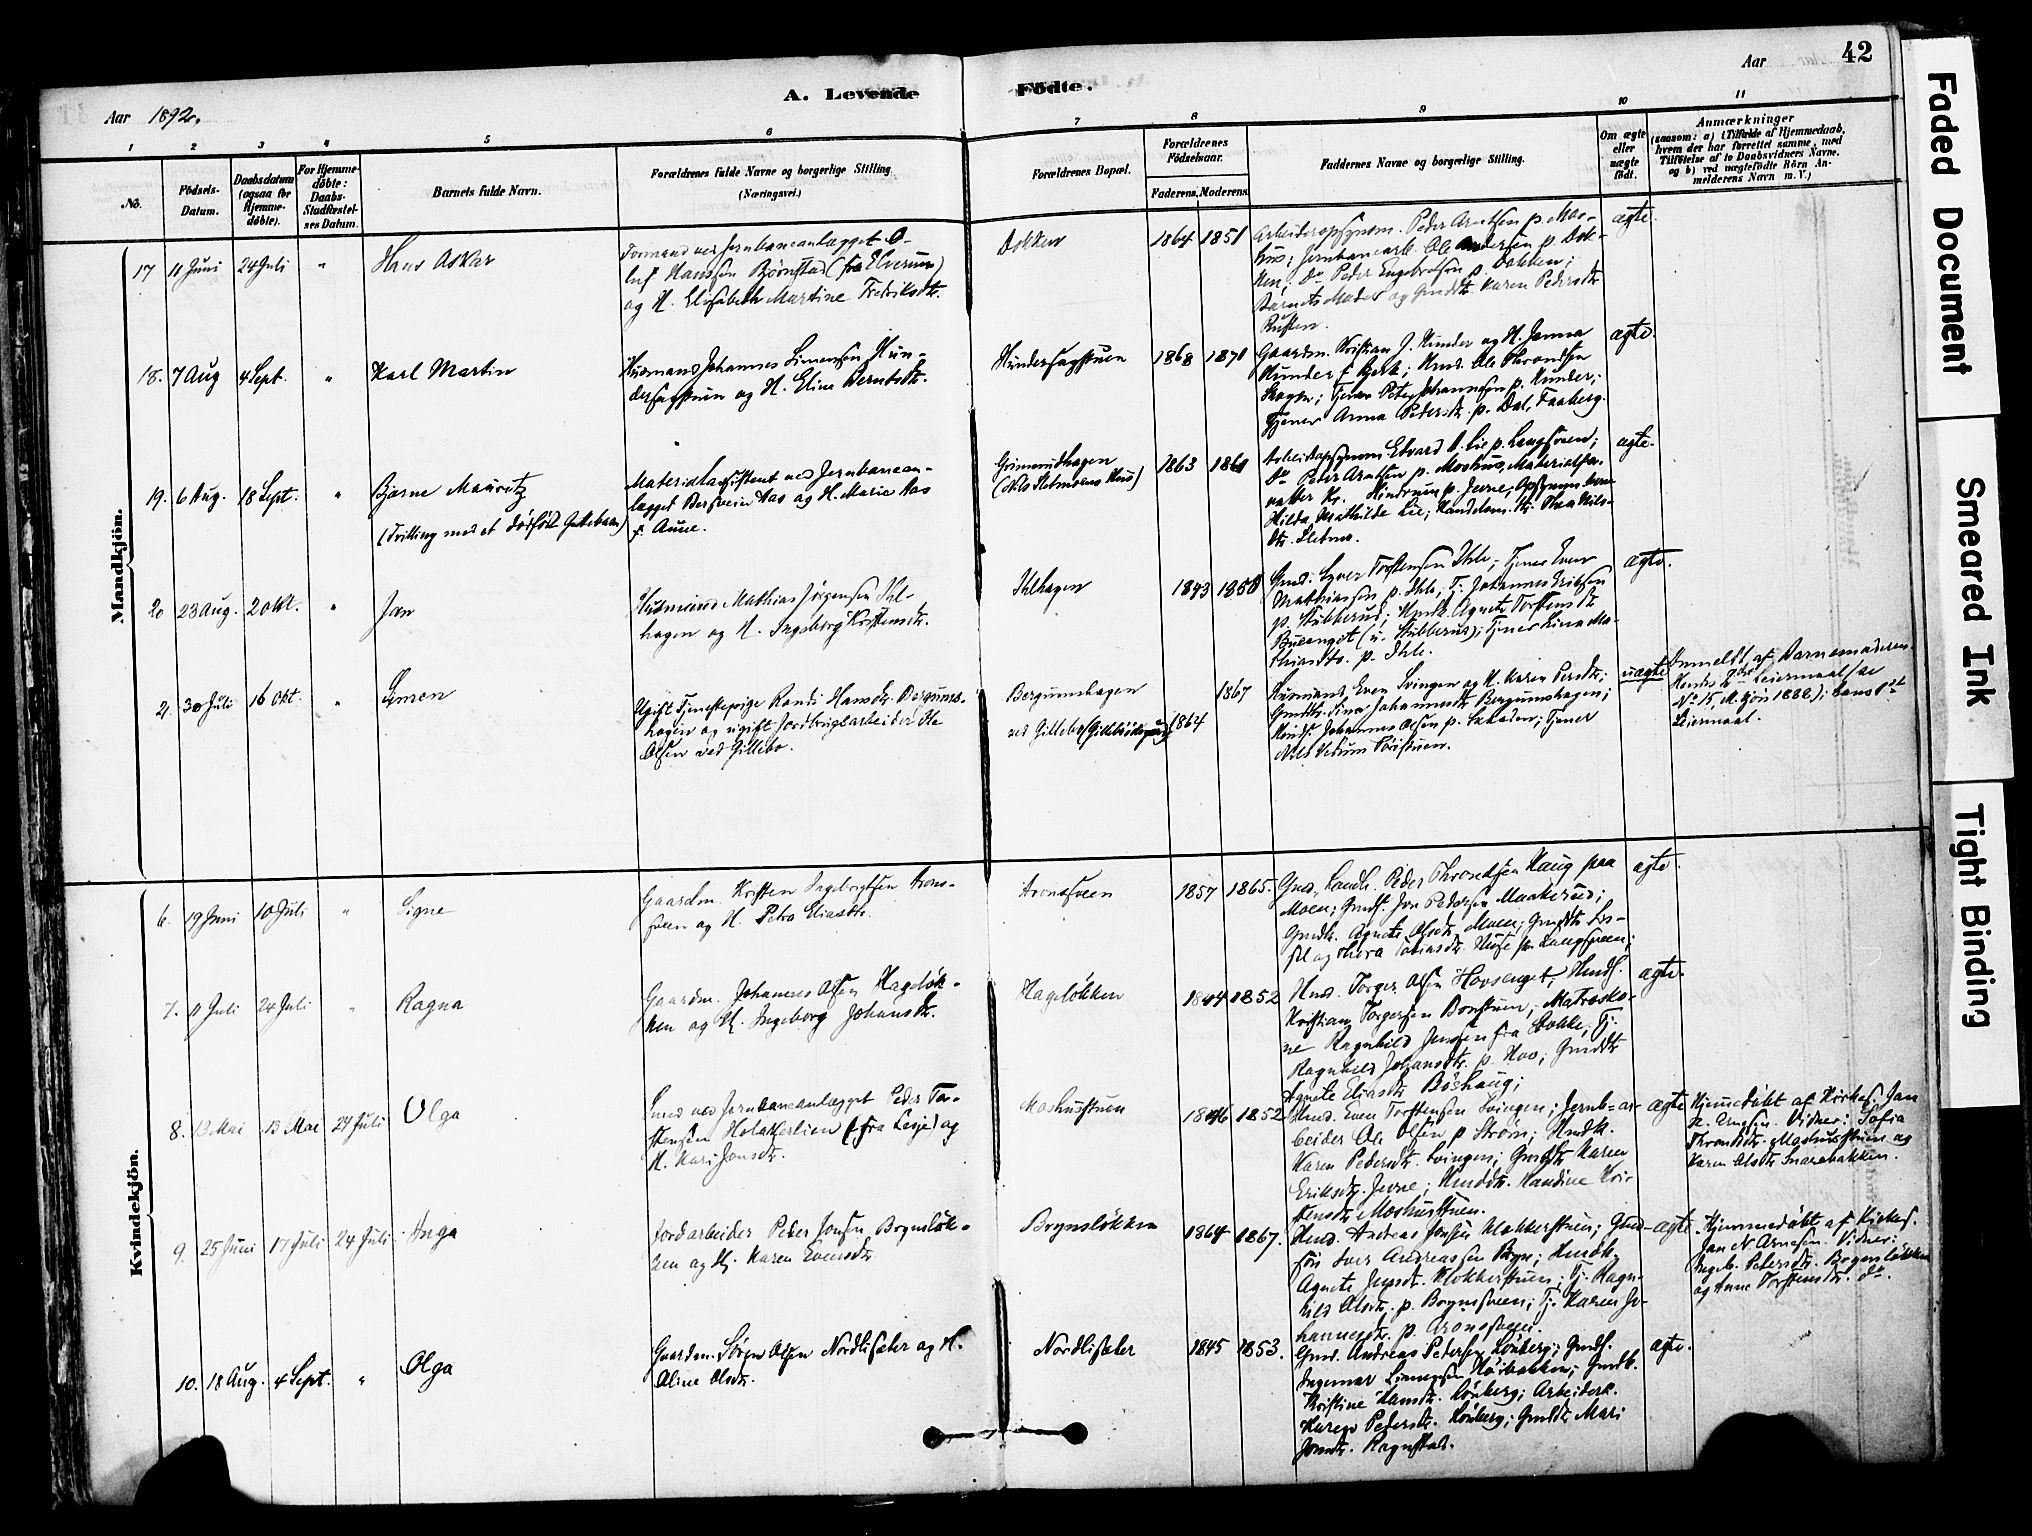 42
Aar 1892.
A. Levende Födte.
Aar
1 2 3 4 5 6 7 8 9 10 11
No.
Födsels-Datum.
Daabsdatum (ogsaa for Hjemmedöbte).
For Hjemmedöbte: Daabs-Stadfæstelses Datum.
Barnets fulde Navn.
Forældrenes fulde Navne og borgerlige Stilling (Næringsvei.)
Forældrenes Bopæl.
Forældrenes Födselsaar.
Faderens. Moderens.
Faddernes Navne og borgerlige Stilling.
Om ægte eller uægte födt.
Anmærkninger
(saasom: a) i Tilfælde af Hjemmedaab, hvem der har forrettet samme, med Tilföielse af to Daabsvidners Navne, og b) ved uægtefödte Börn Anmelderens Navn m. V.)
Mandkjön.
17 11 Juni 24 Juli " Hans Askar
Formand ved Jernbaneanlægget O-
luf Hanssen Bjørnstad (fra Elverum)
og H. Elisabeth Martine Fredriksdtr.
Dokken 1864 1851
Arbeideropsynsm. Peder Arntsen p. Mos-
hus; Jernbanearb. Ole Andersen p. Dok-
ken; Do Peder Engebretsen p. Dokken;
Barnets Moder og Gmdtr. Karen Pedersdtr.
Rusten.
ægte.
18. 7 Aug 4 Sept. " Karl Martin
Husmand Johannes Simensen Hun-
dersagstuen og H. Eline Berntsdtr.
Hundersagstuen 1868 1871
Gaardm. Kristian J. Hunder og H. Janna
Hunder f. Bjerk; Hmd. Ole Throndsen
Skogen; Tjener Peter Johannesen p. Hunder;
Tjener Anna Pedersdtr. p. Dal, Faaberg.
ægte.
19. 6 Aug. 18 Sept. " Bjarne Mauritz
(Tvilling med et dødfødt Guttebarn)
Materialassistent ved Jernbanean-
lægget Bersvein Aas og H. Marie Aas
f. Aune.
Grimerudhagen
(Nils Sletmoens Hus) 1863 1861
Arbeidsopsynsm. Edvard A. Lie p. Langsveen;
Do Peter Arntsen p. Moshus, Materialfor-
valter Kr. Hindrum p. Jevne; Opsynsm.kone
Hilda Mathilde Lie; Handelsm. Kr. Thea Nils-
dtr. Sletmo.
ægte.
20 23 Aug. 2 Okt. " Jan
Husmand Mathias Jørgensen Ihl-
hagen og H. Ingeborg Kristensdtr.
Ihlhagen 1843 1850
Gmd. Syver Torstensen Ihle; Tjener Even
Mathiassen p. Ihle; Tj. Johannes Eriksen
p. Stubberud; Hmdk. Agnete Torstensdtr.
Bueenget (u. Stubberud); Tjener Lina Ma-
thiasdtr. p. Ihle.
ægte.
21. 30 Juli 16 Okt. " Simen
Ugift Tjenestepige Randi Hansdtr. Bergums-
hagen og ugift Jordbrugsarbeider Ole
Olsen ved Gillebo.
Bergumshagen 1867
ved Gillebo 1864
Husmand Even Svingen og H. Karen Persdtr;
Gmdtr. Sina Johannesdtr. Bergumshagen;
Hmds. Johannes Olsen p. ; Tjener
Nils
uægte
Anmeldt af Barnemoderen.
Hendes 2det Leiermaal (se
No 15, M.kjøn 1888); hans 1st
Leiermaal.
Kvindekjön.
6. 19 Juni 10 Juli " Signe
Gaardm. Kristen Ingebrigtsen Arons-
sveen og H. Petra Eliasdtr.
Aronssveen 1857 1865.
Gmd., Landh. Peder Throndsen Haug paa
Moen; Gmds. Jon Pedersen Maakerud;
Gmdk. Agnete Olsdtr. Moen; Gmdtr.
og Thora Huse p. Langsveen;
ægte.
7. 11 Juli 24 Juli " Ragna
Gaardm. Johannes Olsen Hageløk-
ken og H. Ingeborg Johansdtr.
Hageløkken 1844 1852
Hmd. Torger Olsen Hovsenget; Hmds.
Kristian Torgersen ; Matrosko-
ne Ragnhild Jensen fra ; Tj.
Ragnhild Johansdtr. p. Hov; Gmdtr.
Agnete Eliasdtr. Bøshaug;
ægte.
8. 13 Mai 13 Mai 24 Juli Olga
Smed ved Jernbaneanlægget Peder Tor-
stensen Holakerlien (fra Lesje) og
H. Kari Jonsdtr.
Moshusstuen 1846 1852
Hmd. Even Torstensen Svingen; Jernb=ar-
beider Ole Olsen p. Strøm; Hmdk.
Karen Pedersdtr. Svingen; Gmdtr. Karen
Eriksdtr. Jevne; Hmddtr. Handine Kri-
stensdtr. Moshusstuen.
ægte
Hjemmedøbt af Kirkes. Jan
N. Arnesen. Vidner: Sofia
Throndsdtr. Moshusstuen og
Karen Olsdtr. Snarebakken.
9. 25 Juni 17 Juli 24 Juli Inga
Jordarbeider Peder Jonsen Brynsløk-
ken og H. Karen Evensdtr.
Brynsløkken 1864 1867.
Hmd. Andreas Jonsen Klokkerstuen; Gmd-
søn Iver Andreassen Bryn; Hmdk.
Agnete Jensdtr. Klokkerstuen; Tj. Ragn-
hild Olsdtr. p. Brynsveen; Tj. Karen Jo-
hannesdtr. p. Aronsveen.
ægte.
Hjemmedøbt af Kirkes.
Jan N. Arnesen. Vidner:
Ingeb. Pedersdtr. Brynsløkken
og Anne Torstensdtr. do.
10. 18 Aug. 4 Sept. " Olga
Gaardm. Søren Olsen Nordlisæter og H.
Oline Olsdtr.
Nordlisæter 1845 1853.
Gmd. Andreas Pedersen Lønberg; Gmds.
Ingemar Simensen Høibakken; Gmdk.
Kristine Hansdtr. Lønberg; Arbeiderk.
Karen Pedersdtr. Lønberg; Gmdtr. Mari
Jonsdtr. Rognstad.
ægte.
Faded Document
Smeared Ink
Tight Binding